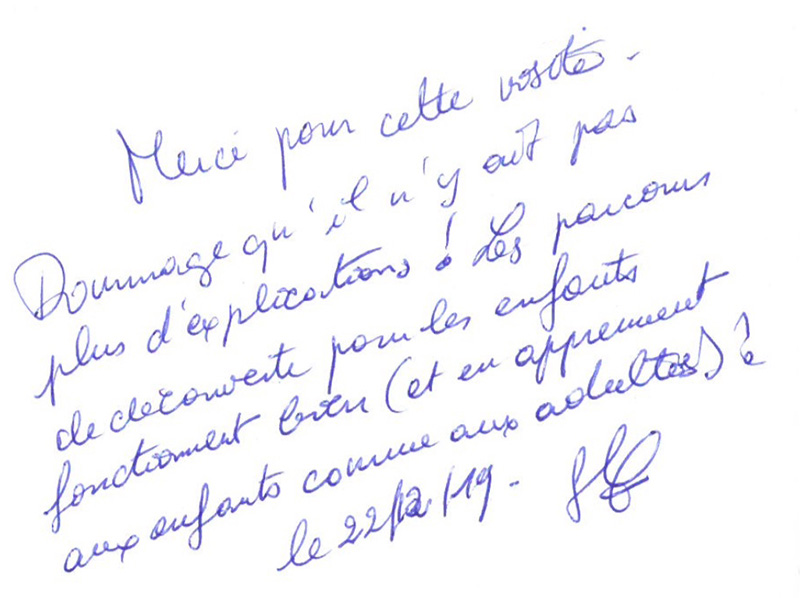 Merci pour cette visite.
Dommage qu'il n'y ait pas
plus d'explications ! Les parcours
de découverte pour les enfants
fonctionnent bien (et en apprennent
aux enfants comme aux adultes) !
le 22/12/19.